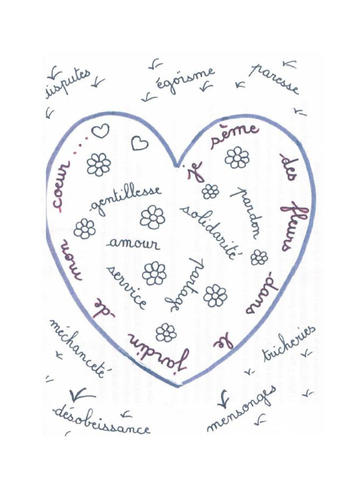 disputes
égoïsme
paresse
je sème des fleurs dans le jardin de mon coeur ....
gentillesse
amour
service
pardon
solidarité
partage
méchanceté
désobeissance
tricheries
mensonges